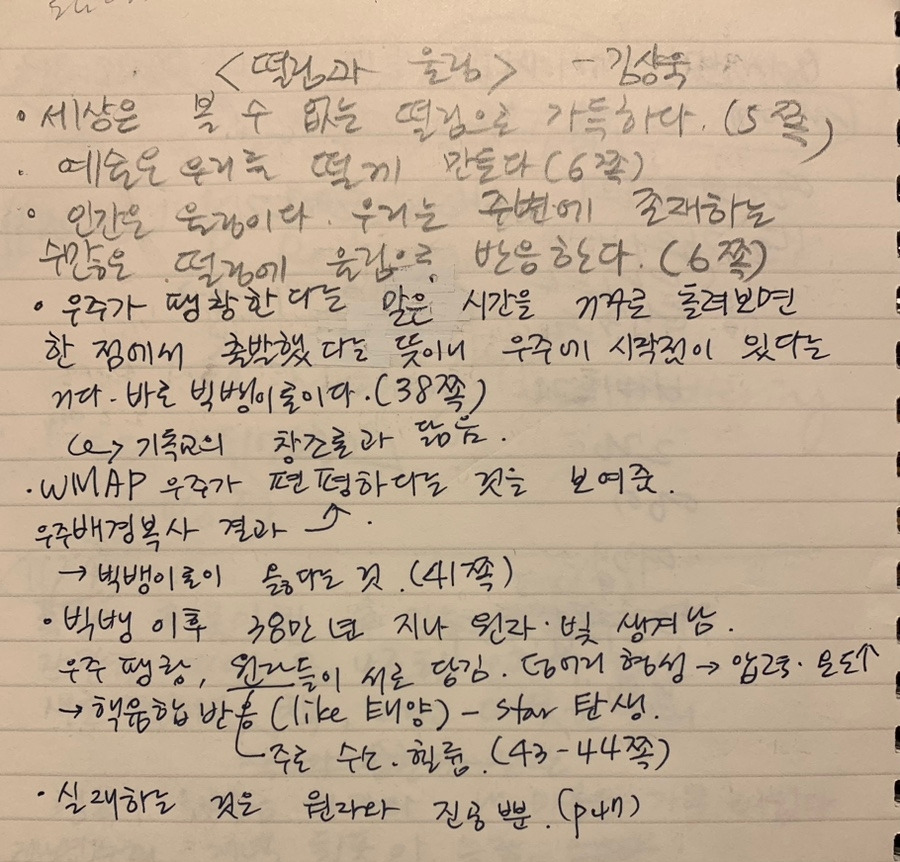 <떨림과 울림> - 김상욱
• 세상은 볼 수 없는 떨림으로 가득하다. (5쪽)
· 예술은 우리를 떨게 만든다 (6쪽)
• 인간은 울림이다. 우리는 주변에 존재하는
수많은 떨림에 울림으로 반응한다. (6쪽)
• 우주가 팽창한다는 말은 시간을 거꾸로 돌려보면
한 점에서 출발했다는 뜻이니 우주에 시작점이 있다는
거다. 바로 빅뱅이론이다. (38쪽)
↳ 기독교의 창조론과 닮음.
· WMAP 우주가 편평하다는 것을 보여줏.
우주배경복사 결과 ↗.
→ 빅뱅이론이 옳다는 것. (41쪽)
• 빅뱅 이후 38만 년 지나 원자·빛 생겨남.
우주 팽창, 원자들이 서로 당김. 덩어리 형성 → 압력·온도↑
→ 핵융합 반응 (like 태양) - star 탄생.
주로 수소·헬륨. (43-44쪽)
• 실재하는 것은 원자와 진공뿐. (p47)